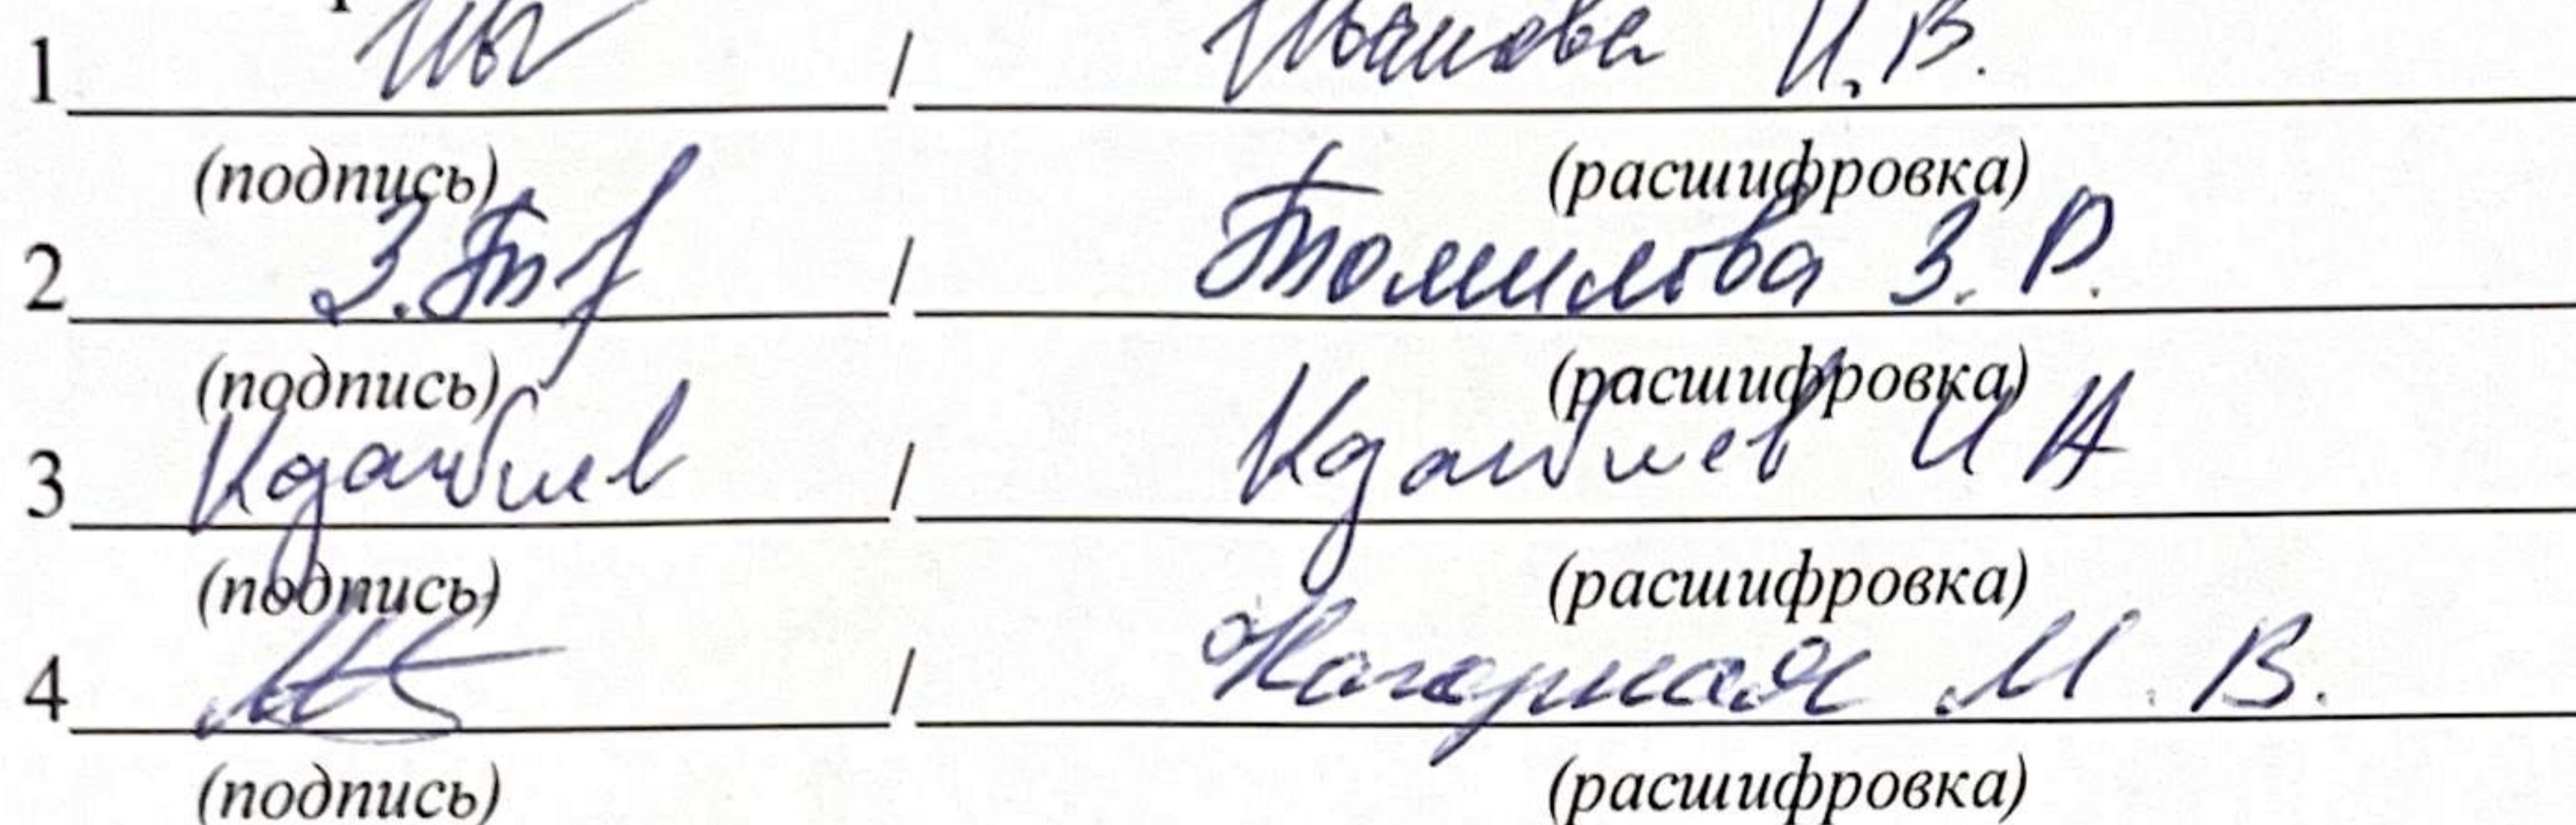 1 / Иванова И.В.
(подпись) (расшифровка)
2 З.Т / Томилова З.Р.
(подпись) (расшифровка)
3 / И А
(подпись) (расшифровка)
4 / Нагорная М.В.
(подпись) (расшифровка)